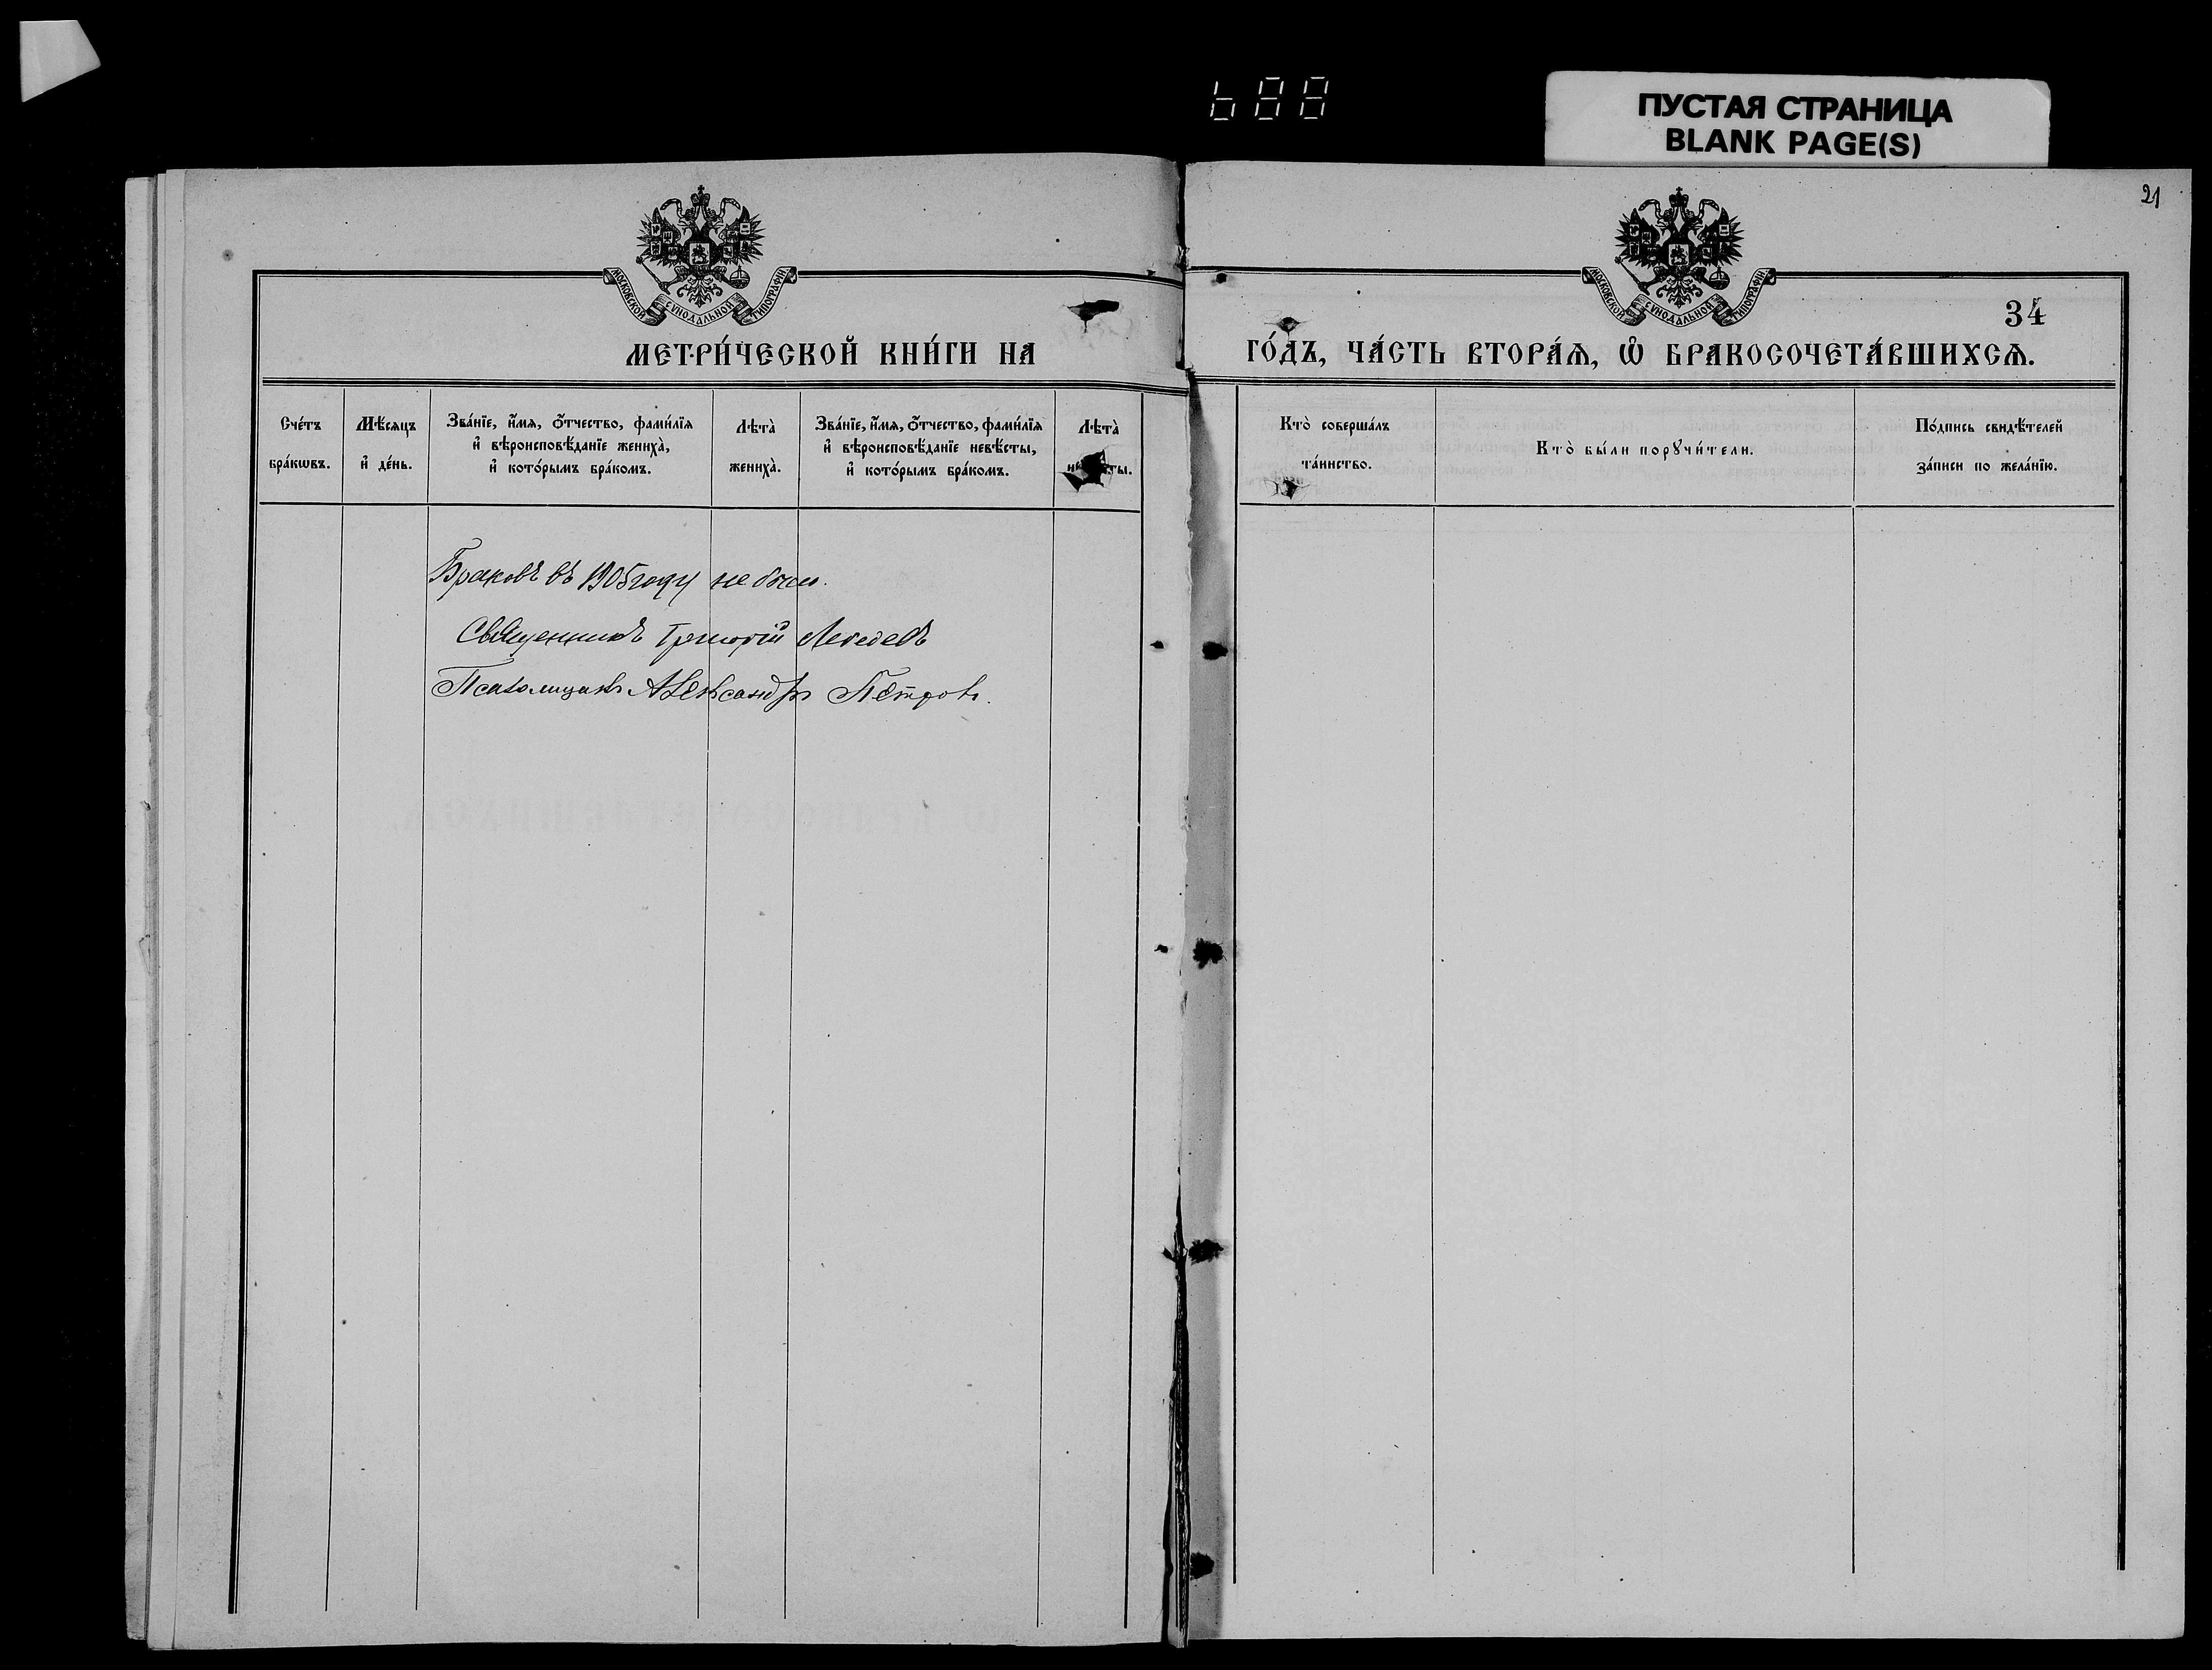 ПУСТАЯ СТРАНИЦА
BLANK PAGE(S)
21
МОСКОВСКОЙ СѴНОДАЛЬНОЙ ТИПОГРАФІИ
МОСКОВСКОЙ СѴНОДАЛЬНОЙ ТИПОГРАФІИ
34
МЕТРИ́ЧЕСКОЙ КНИ́ГИ НА
ГО́ДЪ, ЧА́СТЬ ВТОРА́Ѧ, Ѽ БРАКОСОЧЕТА́ВШИХСѦ.
Сче́тъ
бра́кѡвъ.
Мѣ́сяцъ
и҆ де́нь.
Зва́нїе, и҆́мя, ѻ҆́тчество, фами́лїя
и҆ вѣроисповѣ́данїе жениха̀,
и҆ кото́рымъ бра́комъ.
Лѣта̀
жениха̀.
Зва́нїе, и҆́мя, ѻ҆́тчество, фами́лїя
и҆ вѣроисповѣ́данїе невѣ́сты,
и҆ кото́рымъ бра́комъ.
Лѣта̀
Кто̀ соверша́лъ
та́инство.
Кто̀ бы́ли порꙋчи́тели.
По́дпись свидѣ́телей
за́писи по жела́нїю.
Браковъ въ 1905 году не было.
Священникъ Григорій Лебедевъ
Псаломщикъ Александръ Петровъ.